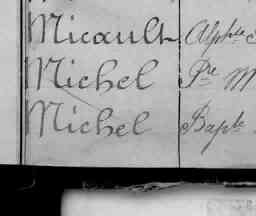 Micault Alph.se
Michel P.re M
Michel Bap.te